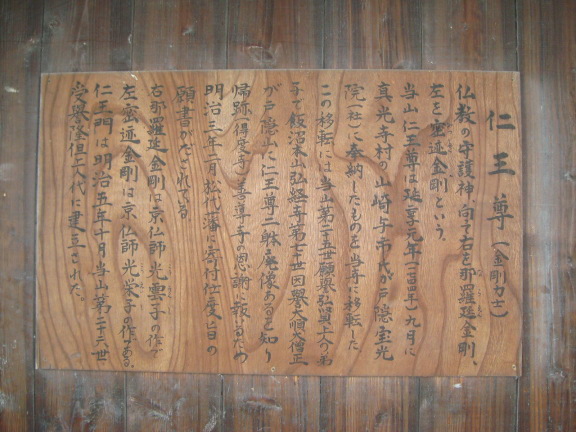 仁王尊(金剛力士)
仏教の守護神、向て右を那羅延金剛、
左を密迹金剛という。
当山仁王尊は延享元年(一七四四年)九月に
真光寺村の山崎与市氏が戸隠宝光
院一社に奉納したものを当寺に移転した
この移転には当山第二五世願誉弘巽上人の弟
子で飯沼本山弘経寺第七十世因誉大順大僧正
が戸隠山に仁王尊二躰廃像あるを知り
帰跡(得度寺)善導寺の恩謝に報るため
明治三年二月松代藩に寄付仕度旨の
願書がだされている
右那羅延金剛は京仏師光雲子の作で
左密迹金剛は京仏師光栄子の作である
仁王門は明治五年十月当山第二十六世、
誉隆上人代に建立された。